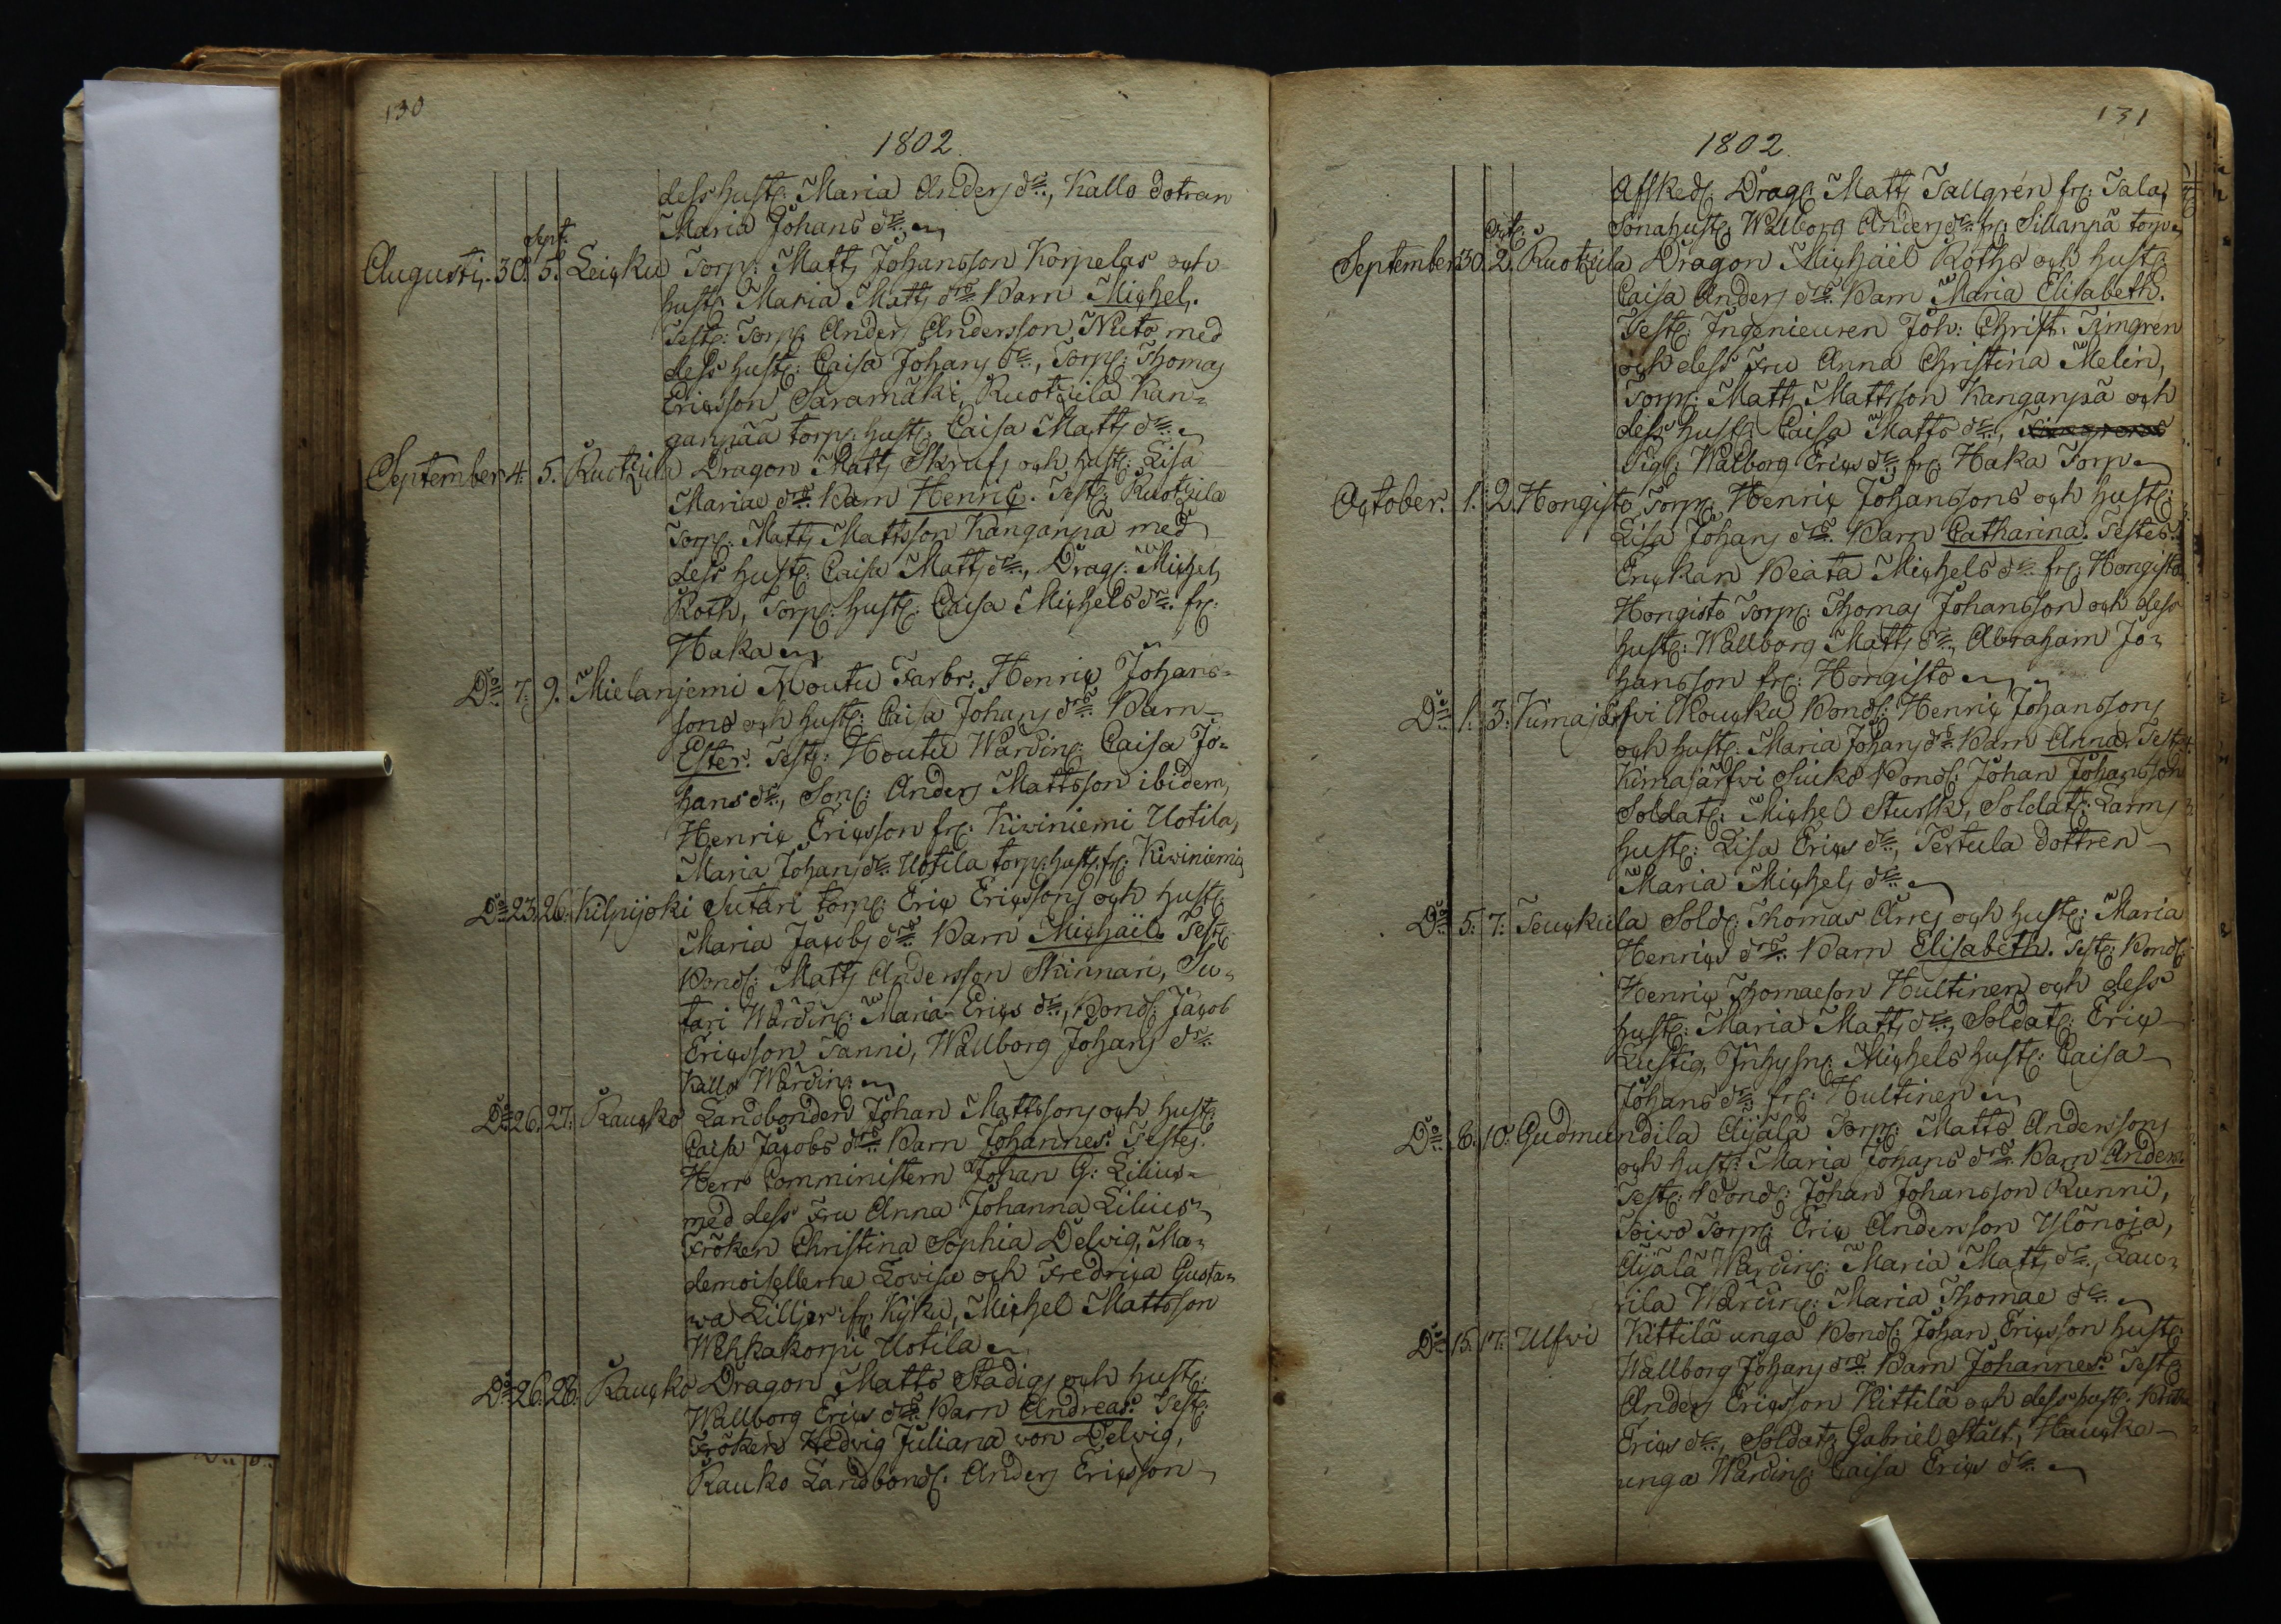 130
1802.
dess hust: Maria Anders dr., Kallo dotran
Maria Johans dr.
Sept.
Augusti. 30. 5. Leicku Torp: Matts Johansson Korpelas och
hust: Maria Matts drs Barn Michel.
Test: Torp: Anders Andersson Nieto med
dess hust: Caisa Johans dr., Torp: Thomas
Ericsson Saramäki, Ruotzila Kan-
ganpää torp: hust: Caisa Matts dr.
September 4. 5. Ruotzila Dragon Matts Skrufs och hust: Lisa
Mariae drs Barn Henric. Test: Ruotzila
Torp: Matts Mattsson Kanganpä med
dess hust: Caisa Matts dr., Drag: Michel
Roth, Torp: hust: Caisa Michels dr. fr:
Haka
Do 7. 9. Mielanjemi Houtu Farbr: Henric Johans-
sons och hust: Caisa Johans drs Barn
Ester. Test: Houtu Wärdin: Caisa Jo-
hans dr., Son: Anders Mattsson ibidem,
Henric Ericsson fr: Kiviniemi Uotila,
Maria Johans dr. Uotila torp: hust: fr: Kiwiniemi
Do 23. 26. Kilpijoki Sutari torp: Eric Ericssons och hust:
Maria Jacobs drs Barn Michaël. Test:
Bond: Matts Andersson Skinnari, Su-
tari Wärdin: Maria Erics dr., Bond: Jacob
Ericsson Tanni, Wallborg Johans dr.
Kallo Wärdin:
Do 26. 27. Raucko Landbonden Johan Mattssons och hust:
Caisa Jacobs drs Barn Johannes. Testes.
Herr Comministern Johan G: Lilius
med dess Fru Anna Johanna Lilius,
Fröken Christina Sophia Delvig, Ma-
demoisellerne Lovisa och Fredrica Gusta-
wa Lilljer: fr: Kyku, Michel Mattsson
Wehkakorpi Uotila
Do 26. 28. Raucko Dragon Matts Stadigs och hust:
Wallborg Erics drs Barn Andreas. Test:
Fröken Hedvig Juliana von Delvig,
Rauko Landbond: Anders Ericsson
131
1802.
Afsked: Drag: Matts Tallgrén fr: Tala,
Sonahust: Wallborg Anders dr. fr: Sillanpä torp
Oct:
September 30. 2. Ruotzila Dragon Michäel Roths och hust:
Caisa Anders drs Barn Maria Elisabeth.
Test: Ingenieuren Joh: Christ: Timgren
och dess Fru Anna Christina Melin,
Torp: Matts Mattsson Kanganpä och
dess hust: Caisa Matts dr.,
Pig: Walborg Erics dr. fr: Haka Torp
October. 1. 2. Hongisto Torp: Henric Johanssons och hust:
Lisa Johans drs Barn Catharina. Testes.
Enckan Beata Michels dr. fr: Hongisto
Hongisto Torp: Thomas Johansson och dess
hust: Wallborg Matts dr., Abraham Jo-
hansson fr: Hongisto
Do 1. 3. Kimajärfvi Koucku Bond: Henric Johanssons
och hust: Maria Johans drs Barn Anna. Test:
Kimajärfvi Siuko Bond: Johan Johansson
Soldat: Michel Stursk, Soldat: Larms
hust: Lisa Erics dr., Pertula dottren
Maria Michels dr.
Do 5. 7. Teuckula Sold: Thomas Ärrej och hust: Maria
Henrics drs Barn Elisabeth. Test: Bond:
Henric Thomaeson Hultinen och dess
hust: Maria Matts dr., Soldat: Eric
Lustig, Inhysn: Michels hust: Caisa
Johans dr. fr: Hultinen
Do 6. 10. Gudmundila Äijälä Torp: Matts Anderssons
och hust: Maria Johans drs Barn Anders.
Test: Bond: Johan Johansson Runni,
Toiwo Torp: Eric Andersson Ylönoja,
Äijälä Wärdin: Maria Matts dr., Lau-
rila Wärdin: Maria Thomae dr.
Do 15. 17. Ulfvi Kittilä unga Bond: Johan Ericsson hust:
Wallborg Johans drs Barn Johannes. Test:
Anders Ericsson Kittilä och dess hust:
Erics dr., Soldat: Gabriel Stålt, Haucka
unga Wärdin: Caisa Erics dr.